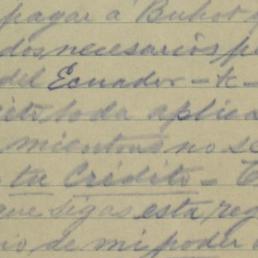 pagar á Buhot
dos necesarios
del Ecuador - K -
toda aplica
mientras no se
tu Crédito -
que sigas esta reg
io de mi poder